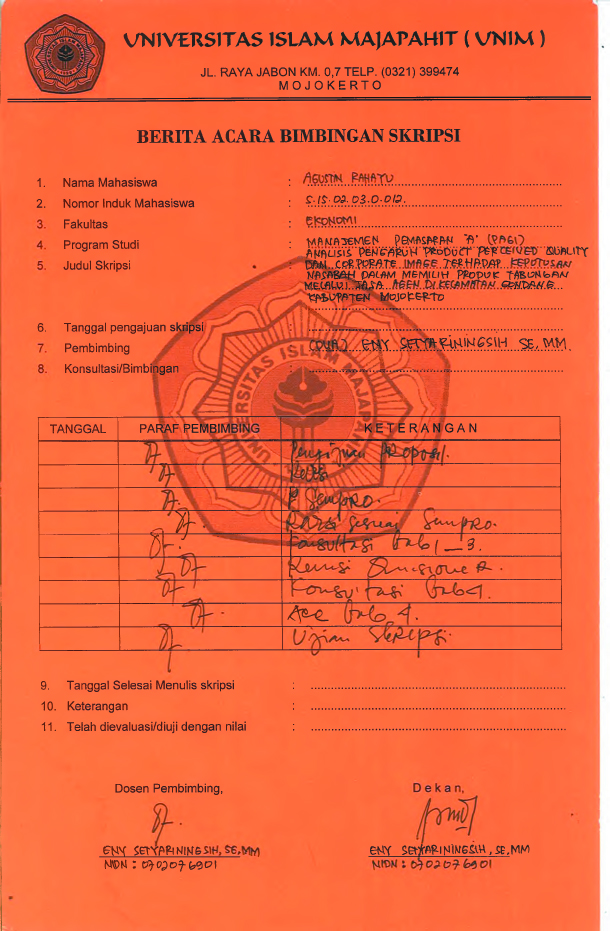 UNIVERSITAS ISLAM MAJAPAHIT ( UNIM )
JL. RAYA JABON KM. 0,7 TELP. (0321) 399474
MOJOKERTO
BERITA ACARA BIMBINGAN SKRIPSI
1. Nama Mahasiswa : AGUSTIN RAHAYU
2. Nomor Induk Mahasiswa : 5.15.02.03.0.012.
3. Fakultas : EKONOMI
4. Program Studi : MANAJEMEN PEMASARAN "A" (PAGI)
5. Judul Skripsi : ANALISIS PENGARUH PRODUCT PERCEIVED QUALITY
DAN CORPORATE IMAGE TERHADAP KEPUTUSAN
NASABAH DALAM MEMILIH PRODUK TABUNGAN
MELALUI JASA AGEN DI KECAMATAN GONDANG
KABUPATEN MOJOKERTO
6. Tanggal pengajuan skripsi :
7. Pembimbing : (DUA) ENY SETYARININGSIH SE, MM.
8. Konsultasi/Bimbingan :
UNIVERSITAS ISLAM MAJAPAHIT
TANGGAL PARAF PEMBIMBING KETERANGAN
Pengajuan Proposal.
Revisi
Sempro.
Revisi sesuai Sempro.
Konsultasi bab 1 - 3.
Revisi
Konsultasi bab 4.
Acc bab 4.
Ujian Skripsi.
9. Tanggal Selesai Menulis skripsi :
10. Keterangan :
11. Telah dievaluasi/diuji dengan nilai :
Dosen Pembimbing, Dekan,
ENY SETYARININGSIH, SE, MM ENY SETYARININGSIH, SE, MM
NIDN : 0702076901 NIDN : 0702076901